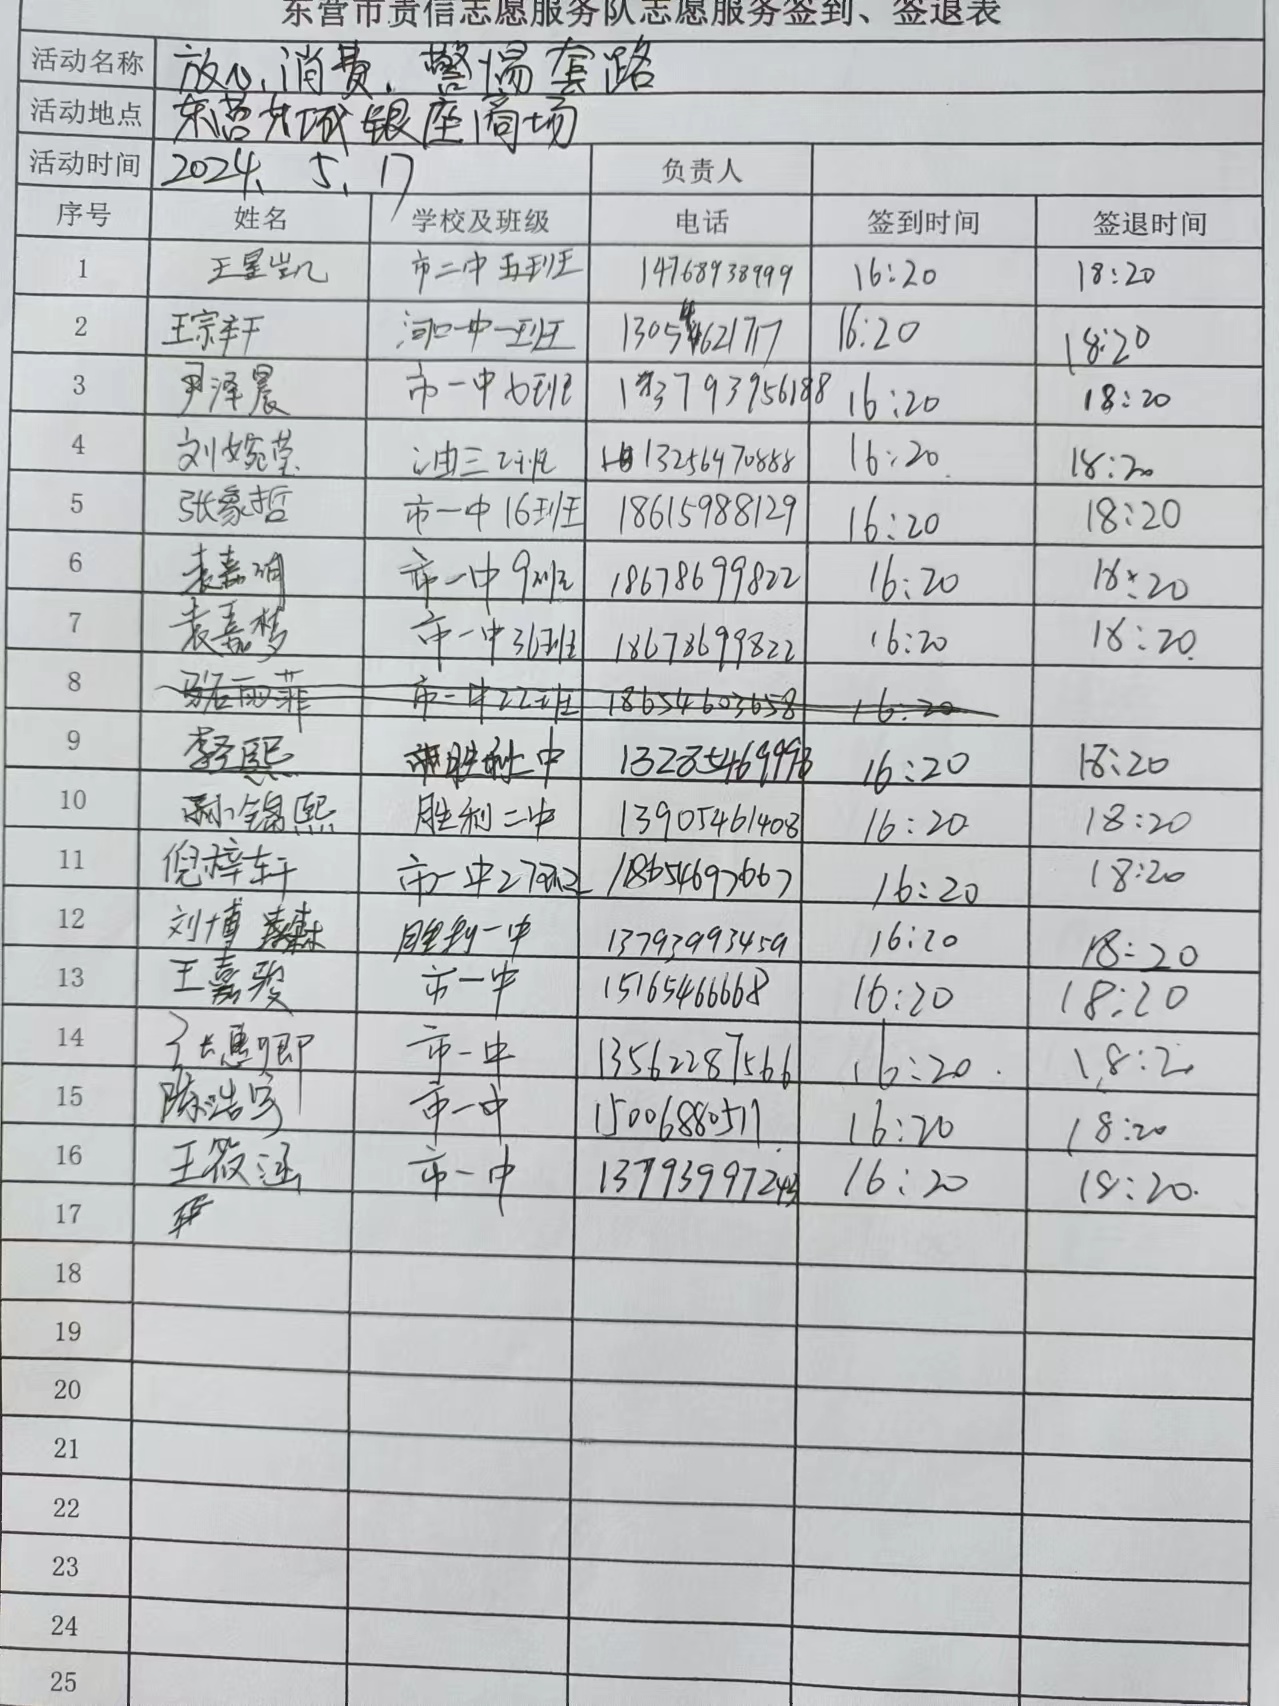 东营市责信志愿服务队志愿服务签到、签退表
活动名称 放心消费,警惕套路
活动地点 东营东城银座商场
活动时间 2024、5、17 负责人
序号 姓名 学校及班级 电话 签到时间 签退时间
1 王星凯 市二中五班 14768938999 16:20 18:20
2 王宗轩 河口一中一班 13054621717 16:20 18:20
3 尹泽晨 市一中七班 13793956188 16:20 18:20
4 刘婉莹 油三2班 13256470888 16:20 18:20
5 张象哲 市一中16班 18615988129 16:20 18:20
6 袁嘉明 市一中9班 18678699822 16:20 18:20
7 袁嘉梦 市一中36班 18678699822 16:20 18:20.
8 骆丽菲 市一中22班 18654603658 16:20
9 熙 胜利二中 13285469998 16:20 18:20
10 孙锦熙 胜利二中 13905461408 16:20 18:20
11 倪梓轩 市一中27班 18654697667 16:20 18:20
12 刘博森 胜利一中 13793993459 16:20 18:20
13 王嘉骏 市一中 15165466668 16:20 18:20
14 市一中 13562287566 16:20. 18:2
15 陈浩宇 市一中 15006880517 16:20 18:20
16 王筱涵 市一中 16:20 18:20.
17
18
19
20
21
22
23
24
25